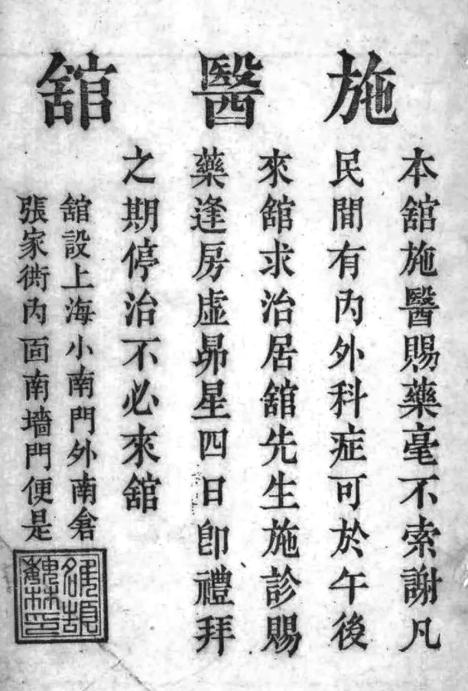 施醫舘
本舘施醫賜藥毫不索謝凡
民間有內外科症可於午後
來舘求治居舘先生施診賜
藥逢房虛昴星四日卽禮拜
之期停治不必來舘
舘設上海小南門外南倉
張家衖內面南墻門便是
雒頡
魏林印